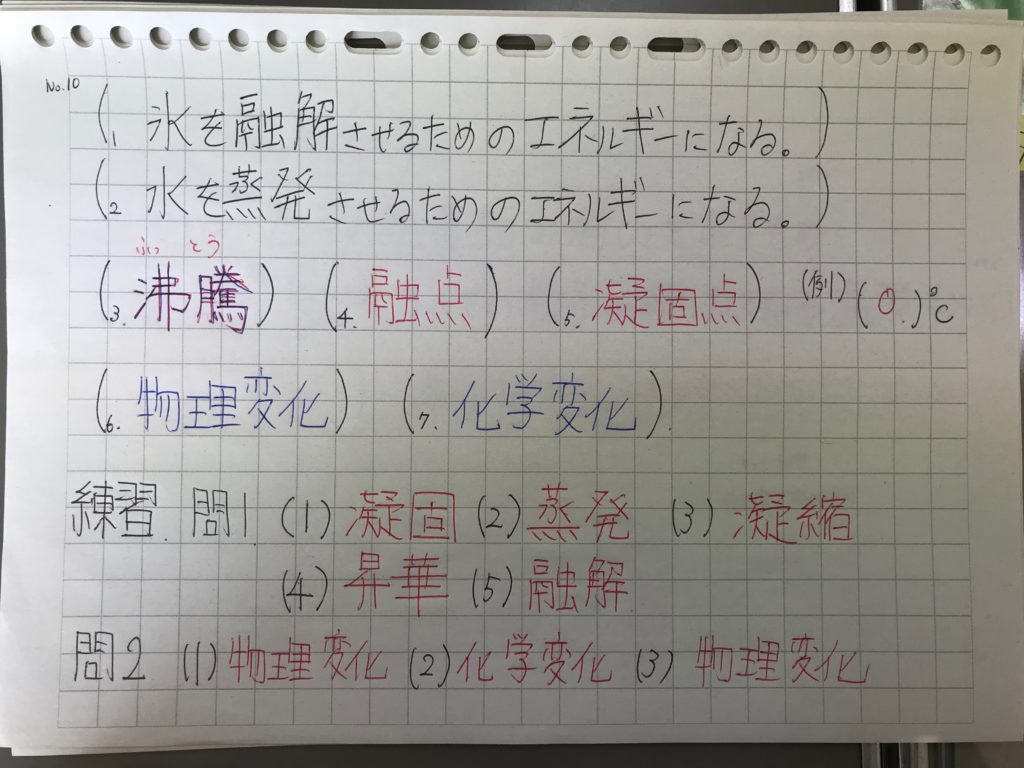 No.10
(1. 氷を融解させるためのエネルギーになる。)
(2 水を蒸発させるためのエネルギーになる。)
ふっ とう
(3. 沸騰) (4. 融点) (5. 凝固点) (例) (0.)℃
(6. 物理変化) (7. 化学変化).
練習. 問1. (1) 凝固 (2) 蒸発 (3) 凝縮
(4) 昇華 (5) 融解
問2 (1) 物理変化 (2) 化学変化 (3) 物理変化